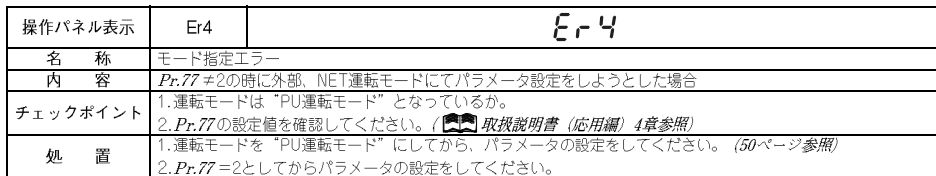 操作パネル表示 Er4 Er4
名 称 モード指定エラー
内 容 Pr.77 ≠2の時に外部、NET運転モードにてパラメータ設定をしようとした場合
チェックポイント
1.運転モードは“PU運転モード”となっているか。
2.Pr.77の設定値を確認してください。( 取扱説明書（応用編）4章参照)
処 置
1.運転モードを“PU運転モード”にしてから、パラメータの設定をしてください。 (50ページ参照)
2.Pr.77 =2としてからパラメータの設定をしてください。